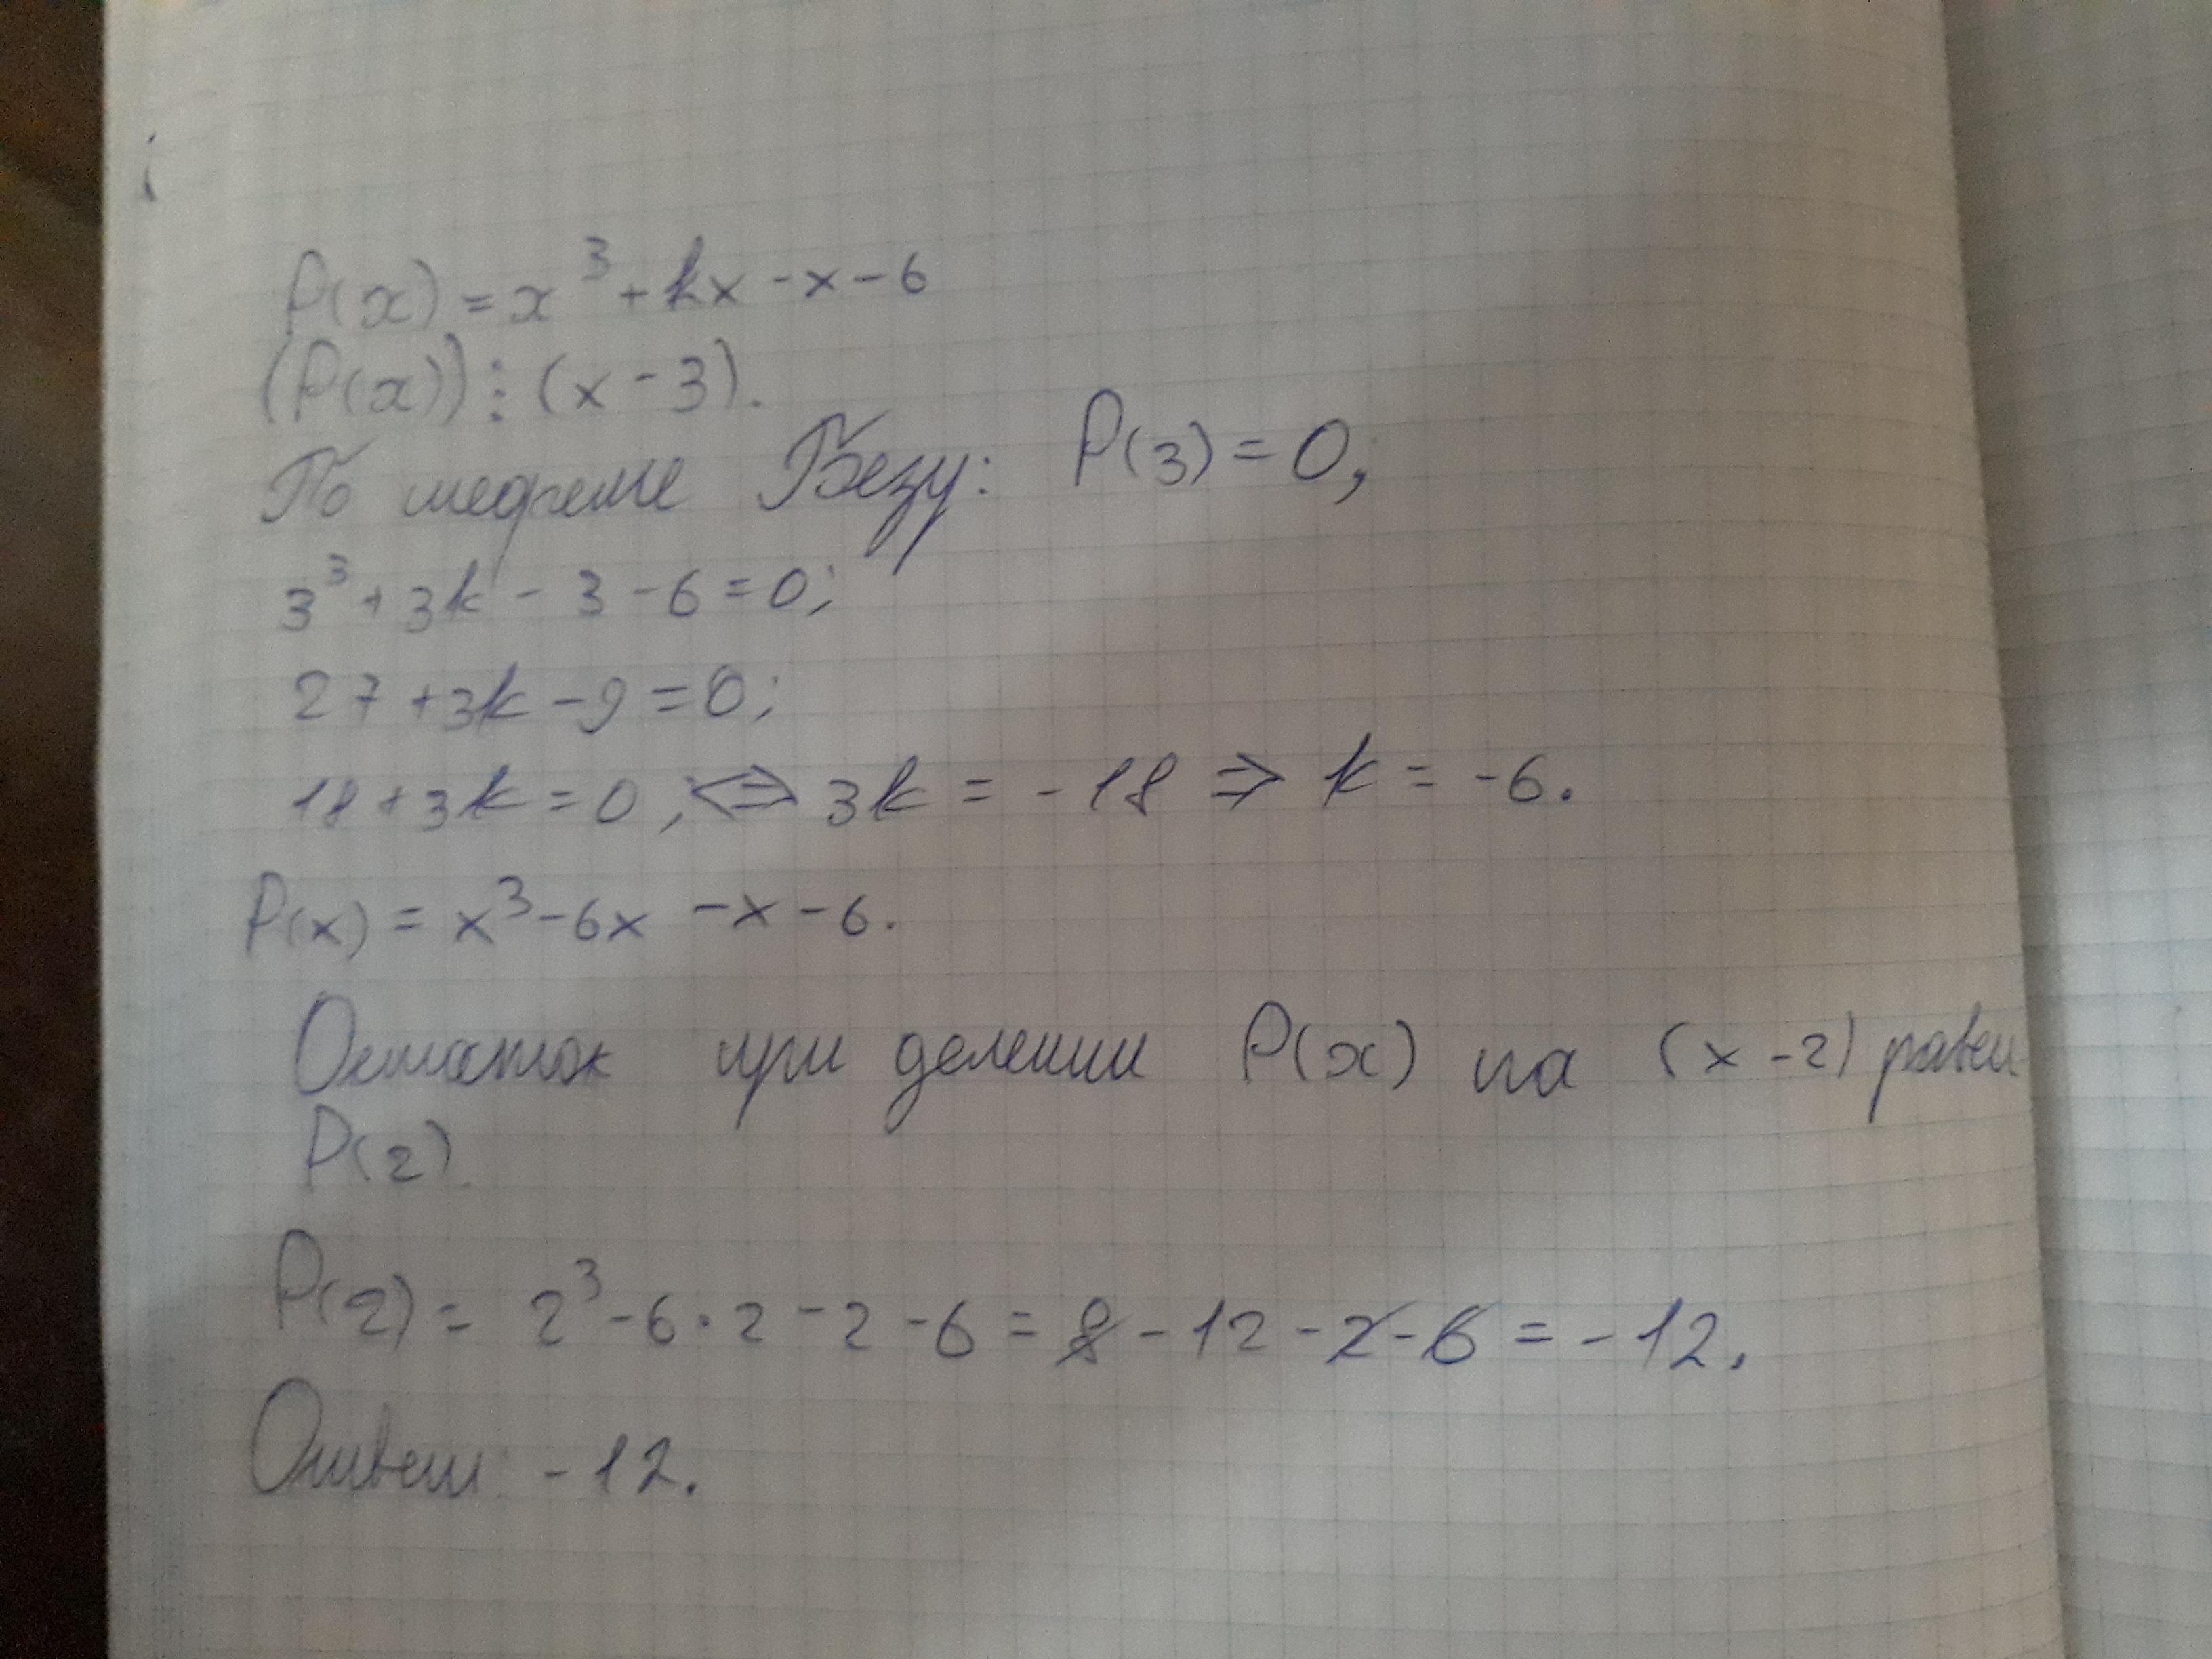 P(x) = x³ + kx - x - 6
(P(x)) ⋮ (x - 3).
По теореме Безу: P(3) = 0;
3³ + 3k - 3 - 6 = 0;
27 + 3k - 9 = 0;
18 + 3k = 0; ⇔ 3k = -18 ⇒ k = -6.
P(x) = x³ - 6x - x - 6.
Остаток при делении P(x) на (x - 2) равен
P(2).
P(2) = 2³ - 6 · 2 - 2 - 6 = 8 - 12 - 2 - 6 = -12.
Ответ: -12.